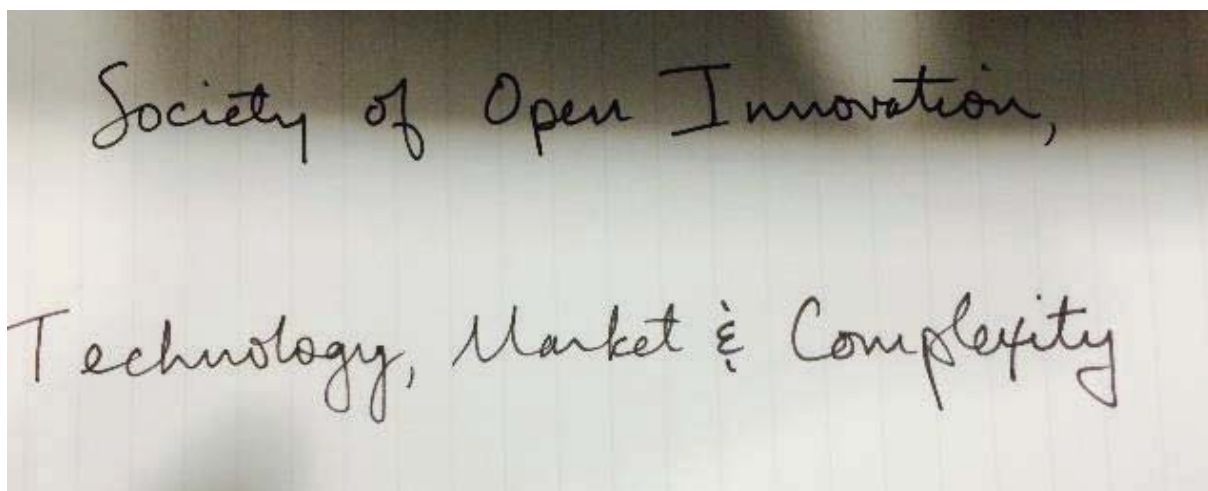 Society of Open Innovation,
Technology, Market & Complexity